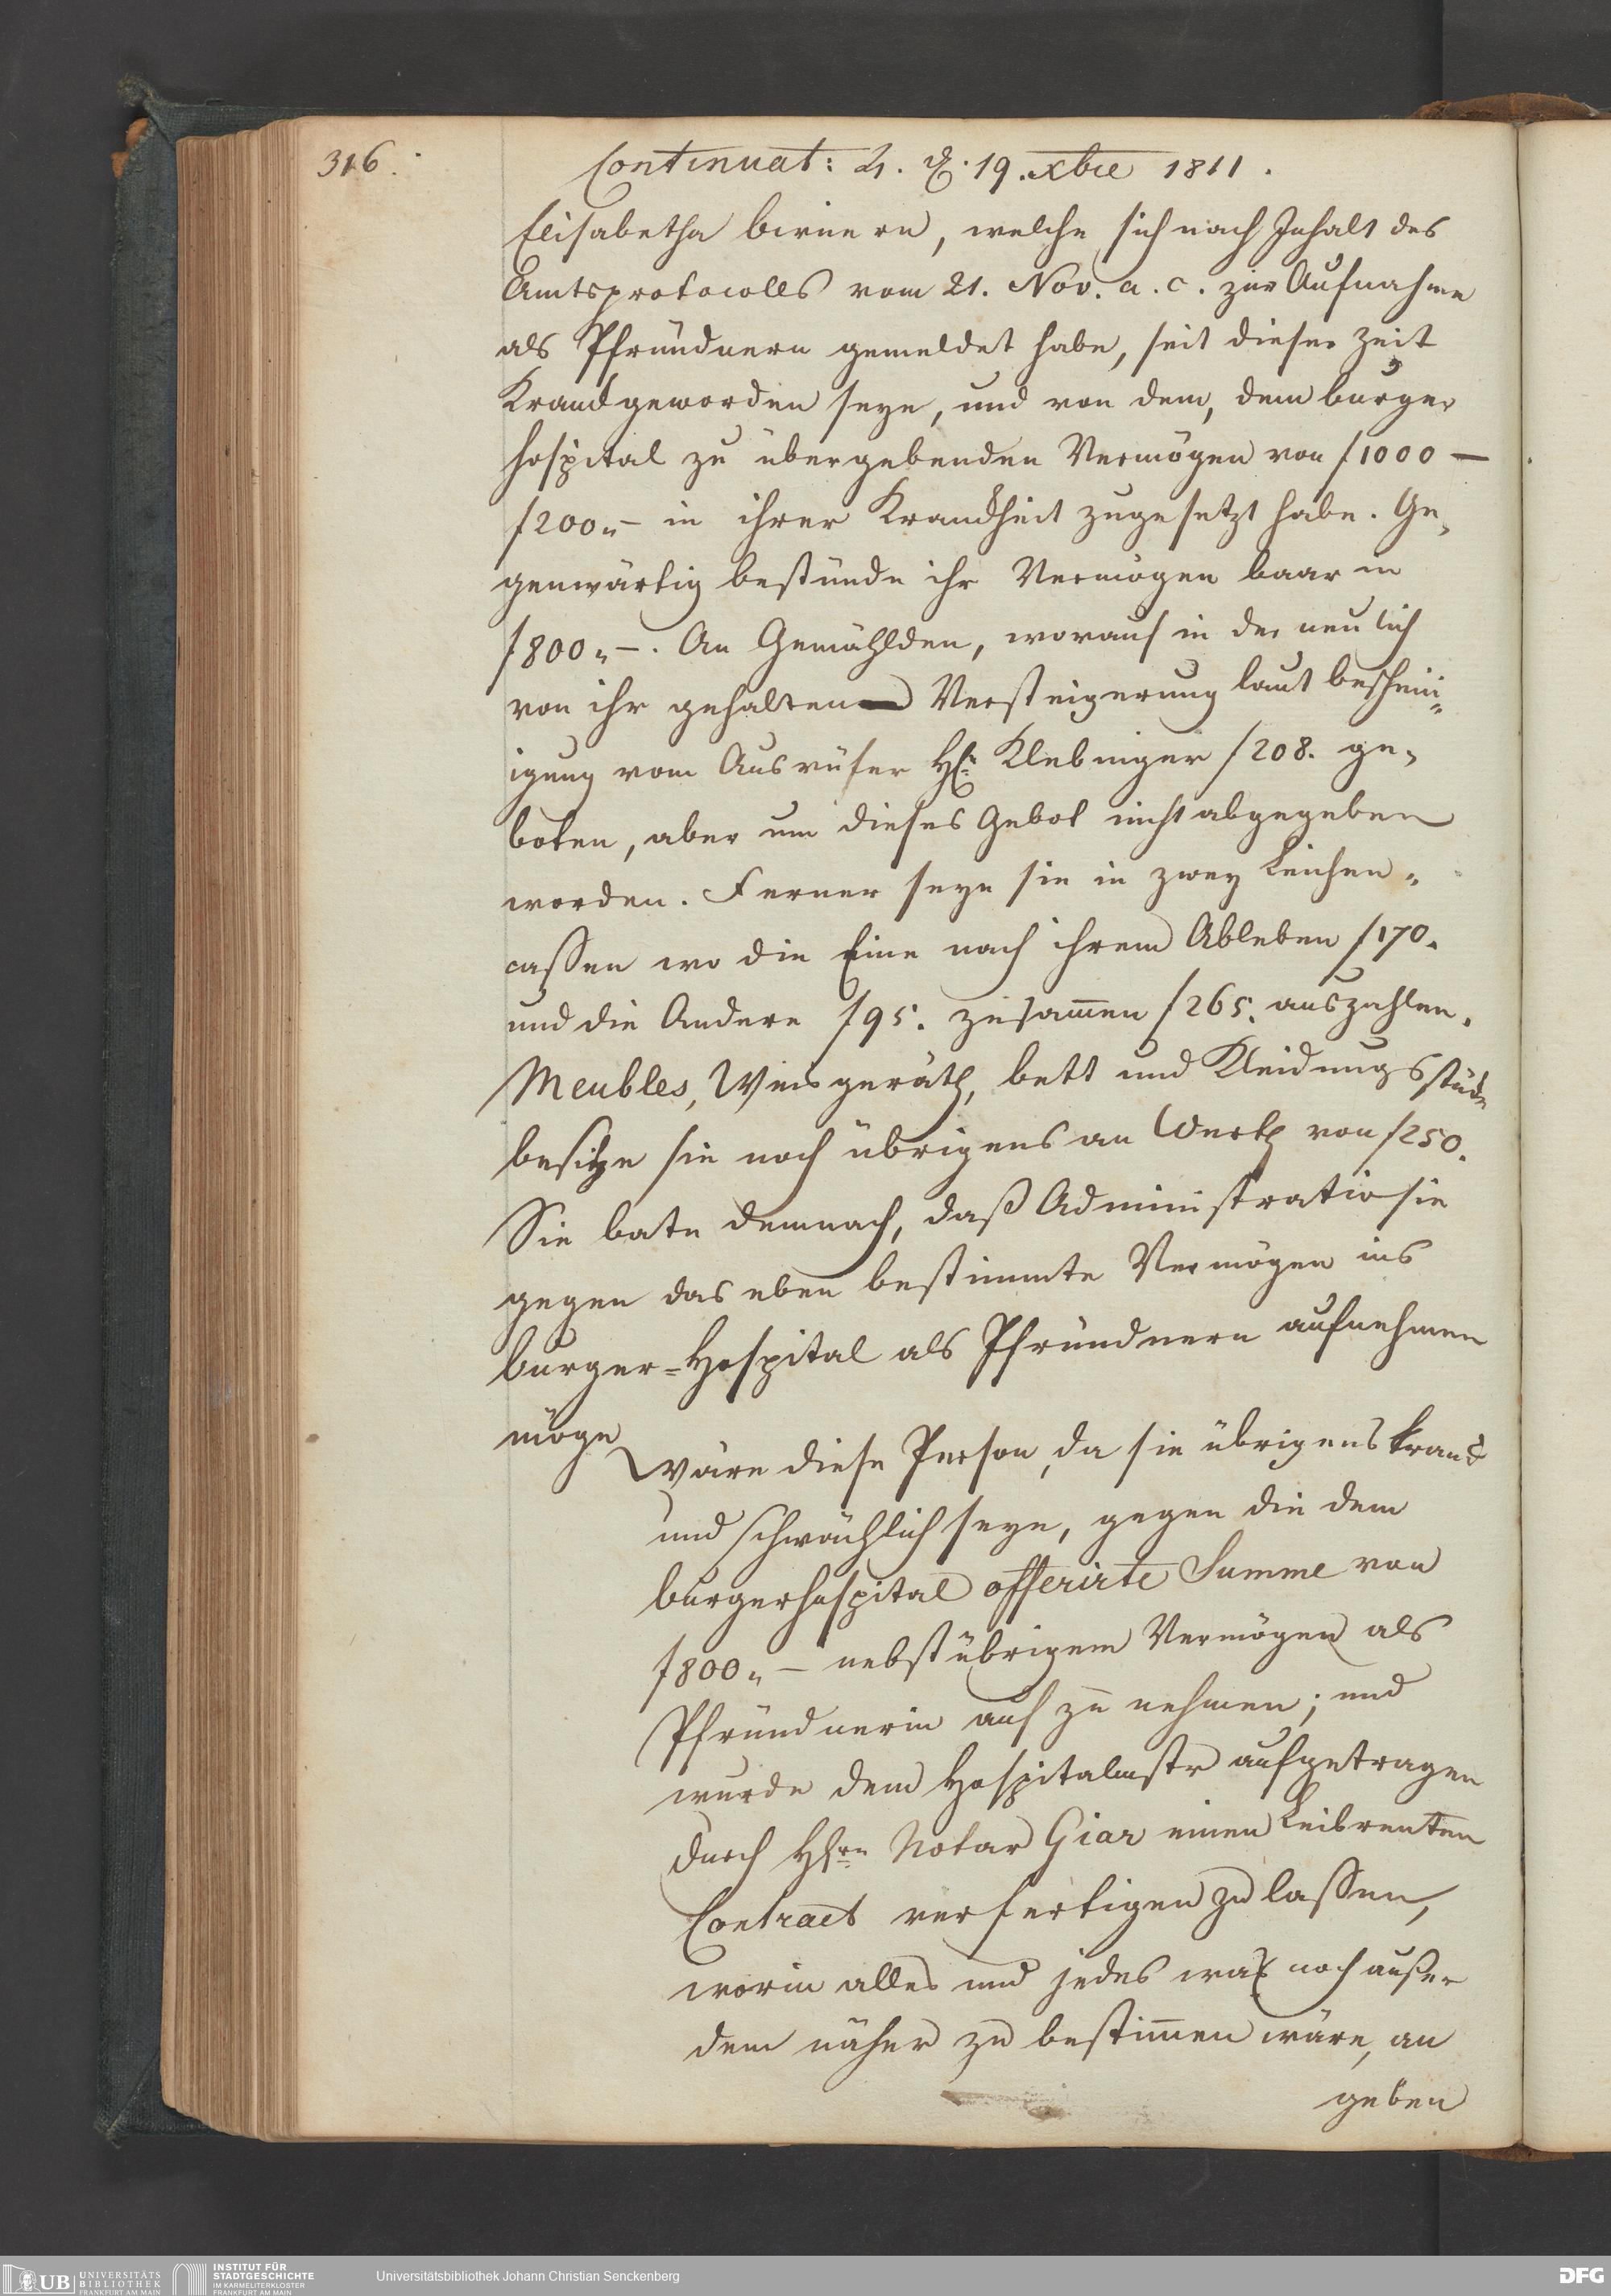 316.
Continuat: 4. d. 19. xbre 1811.
Elisabetha birnern, welche sich nach Inhalt des
Amtsprotocolls vom 21. Nov. a. c. zur Aufnahme
als Pfründnern gemeldet habe, seit dieser Zeit
Kranck geworden seye, und von dem, dem burger
hospital zu übergebenden Vermögen von f 1000 –
f 200 „ – in ihrer Kranckheit zugesetzt habe. Ge„
genwärtig bestünde ihr Vermögen baar in
f 800 „ –. An Gemählden, worauf in der neulich
von ihr gehalten Versteigerung laut beschein„
igung vom Ausrüfer H: Klebinger f 208. ge„
boten, aber um dieses Gebot nicht abgegeben
worden. Ferner seye sie in zwey Leichen„
cassen wo die Eine nach ihrem Ableben f 170.
und die Andere f 95. zusam̄en f 265. auszahlen.
Meubles, Weisgeräth, bett und Kleidungsstücke
besitze sie noch übrigens an Werth von f 250.
Sie bate demnach, daß Administratio sie
gegen das eben bestimmte Vermögen ins
burger=Hospital als Pfründnern aufnehmen
möge
Wäre diese Person, da sie übrigens kranck
und schwächlich seye, gegen die dem
burgerhospital offerirte Summe von
f 800 „ – nebst übrigem Vermögen als
Pfründnerin auf zu nehmen; und
wurde dem Hospitalmstr aufgetragen
durch Hhrn Notar Giar einen Leibrenten
Contract verfertigen zu lassen,
worin alles und jedes was noch außer
dem näher zu bestim̄en wäre, an
geben
UB UNIVERSITÄTS
BIBLIOTHEK
FRANKFURT AM MAIN
INSTITUT FÜR
STADTGESCHICHTE
IM KARMELITERKLOSTER
FRANKFURT AM MAIN
Universitätsbibliothek Johann Christian Senckenberg
DFG